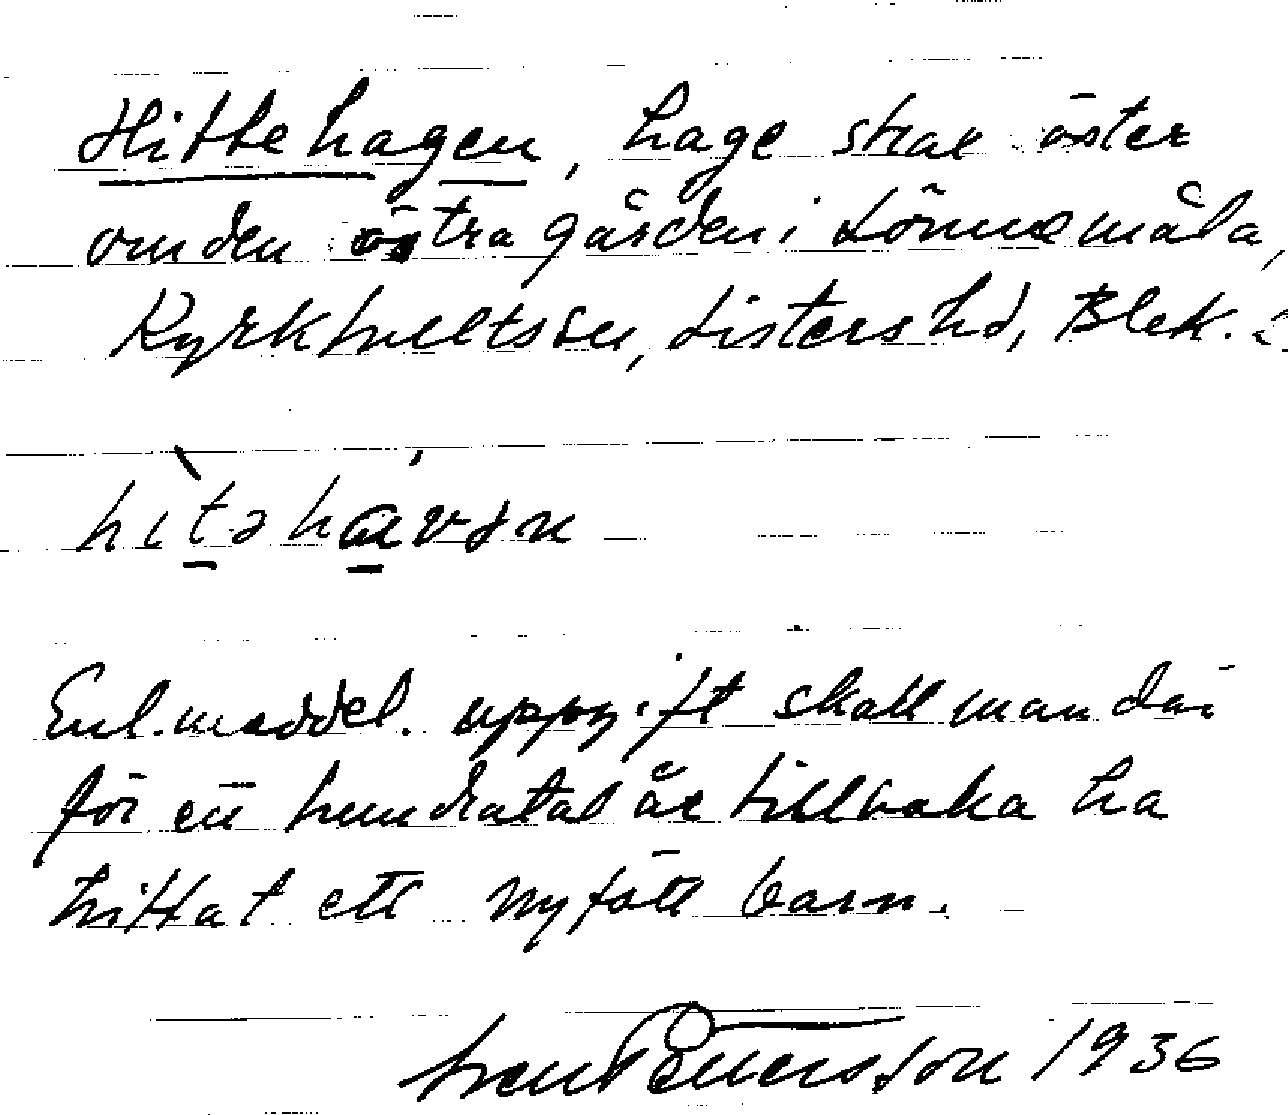 Hittehagen, hage strax öster
om den östra gården i Lönnemåla,
Kyrkhultssn, Listers hd, Blek.
hitəhavən
Enl. meddel. uppgift skall man där
för ett hundratal år tillbaka ha
hittat ett nyfött barn.
Sven Pettersson 1936